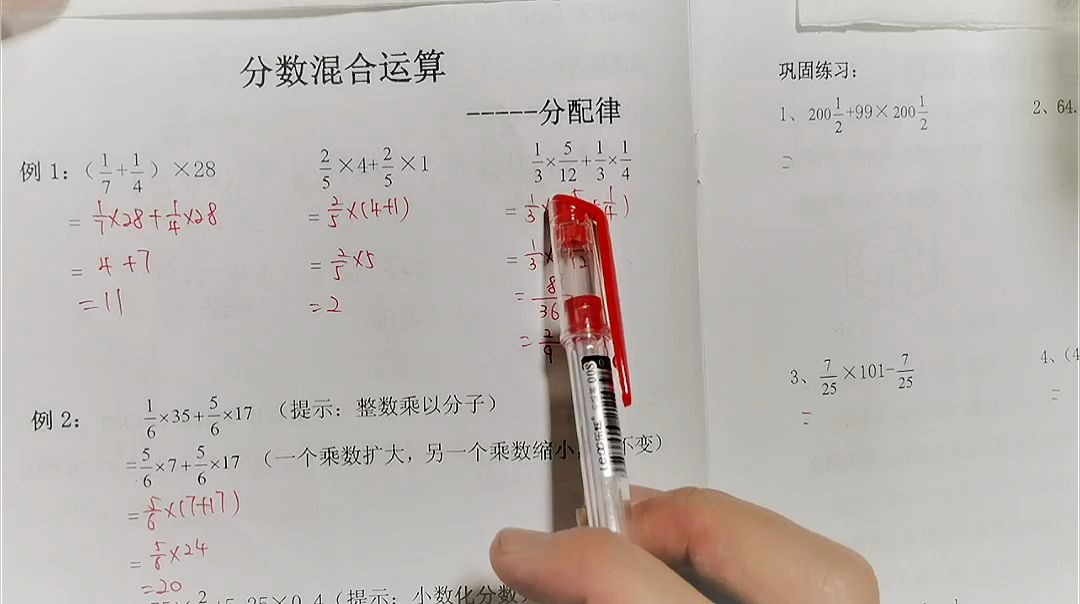 分数混合运算
-----分配律
例 1：（1/7+1/4）×28
=1/7×28+1/4×28
= 4+7
=11
2/5×4+2/5×1
=2/5×(4+1)
=2/5×5
=2
1/3×5/12+1/3×1/4
=1/3× 1/4)
=1/3× 12
=8/36
=2/9
例 2：
1/6×35+5/6×17 （提示：整数乘以分子）
=5/6×7+5/6×17 （一个乘数扩大，另一个乘数缩小， 不变）
=5/6×(7+17)
=5/6×24
=20
5.25×0.4（提示：小数化分数
巩固练习：
1、200 1/2+99×200 1/2
=
2、64.
3、7/25×101-7/25
=
4、(4
=